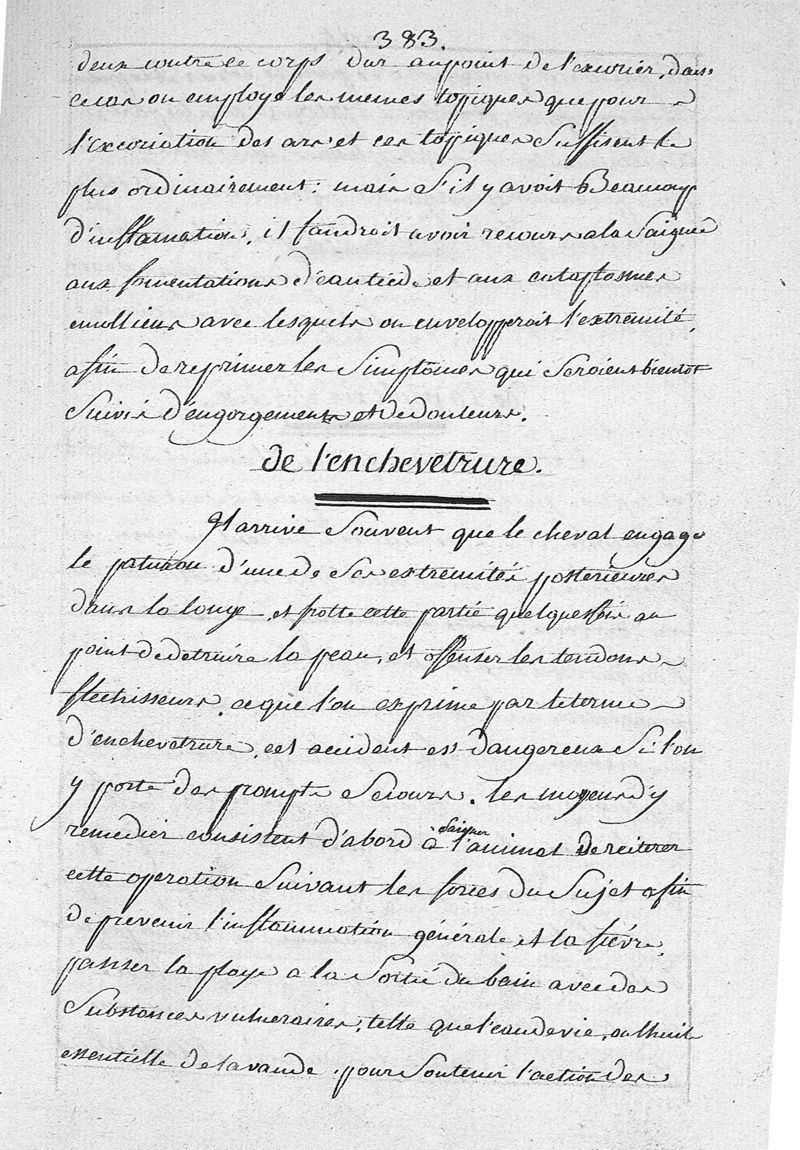 383.
deux contre ce corps dur au point de l'excorier, dans
ce cas on employe les memes topiques que pour
l'excoriation des ars et ces topiques suffisent le
plus ordinairement: mais s'il y avoit Beaucoup
d'inflamation, il faudroit avoir recours a la saignée
aux fomentations d'eau tiede et aux cataplasmes
emolliens avec lesquels on envelopperoit l'extremité,
afin de reprimer les simptômes qui seroient bientot
suivis d'engorgements et de douleurs.
de l'enchevetrure.
Il arrive souvent que le cheval engage
le paturon d'une de ses extremités posterieures
dans la longe, et frotte cette partie quelquesfois au
point de detruire la peau, et offenser les tendons
flechisseurs, ce que l'on exprime par le terme
d'enchevetrure, cet accident est dangereux si l'on
y porte des prompts secours. les moyens d'y
remedier consistent d'abord à saigner l'animal de reiterer
cette operation suivant les forces du sujet afin
de prevenir l'inflammation générale et la fiévre,
panser la playe a la sortie du bain avec des
substances vulneraires, telle que l'eau de vie, ou l'huile
essentielle de lavande. pour soutenir l'action des